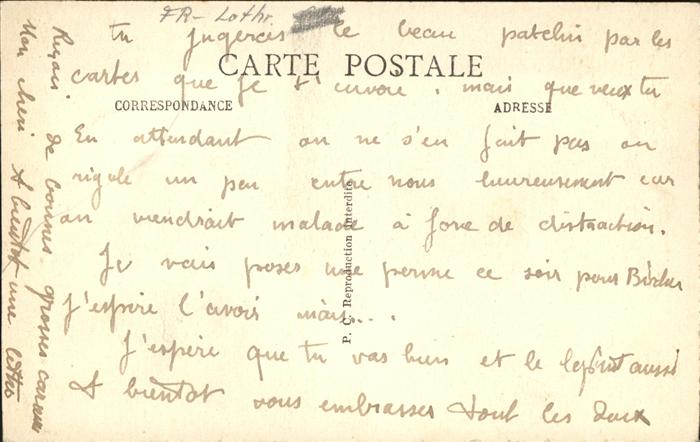 FR - Lothr.
tu jugerais le beau patelin par les
CARTE POSTALE
cartes que je t'envoie, mais que veux tu
CORRESPONDANCE
ADRESSE
En attendant on ne s'en fait pas on
rigole un peu entre nous heureusement car
on viendrait malade à force de distraction.
Je vais poser une perme ce soir pour
j'espère l'avoir mais...
J'espère que tu vas bien et le aussi
A bientôt vous embrasser tout les deux
P. C. Reproduction interdite
Reçois de bonnes grosses
Mon chéri A bientôt une lettre